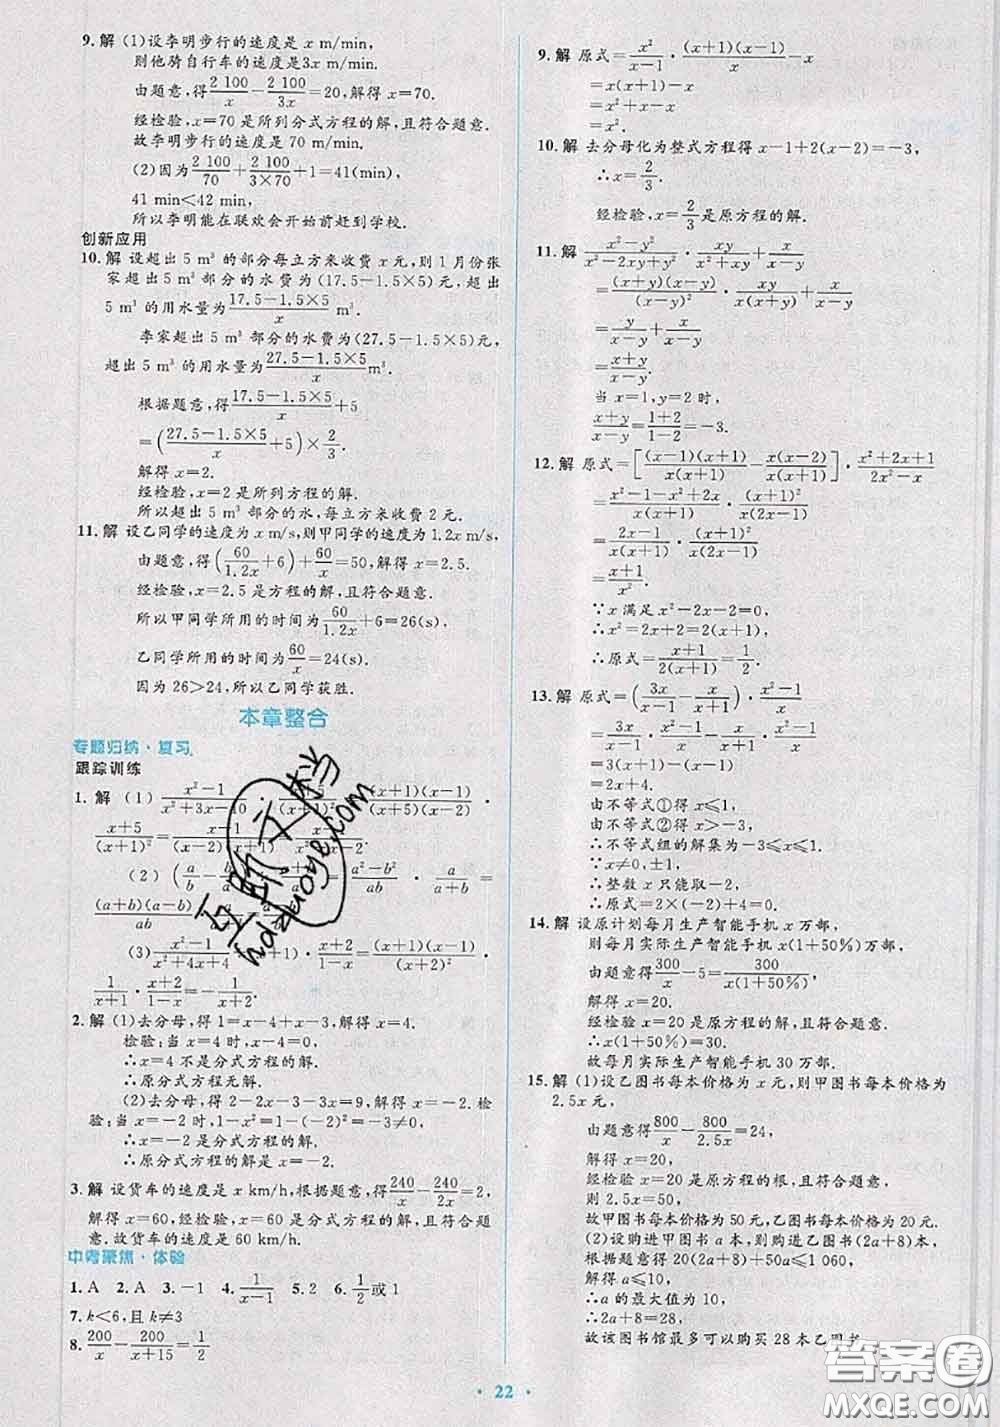 9. 解 (1)设李明步行的速度是 x m/min,
则他骑自行车的速度是3x m/min.
由题意,得2 100/x－2 100/3x＝20,解得 x＝70.
经检验,x＝70 是所列分式方程的解,且符合题意.
故李明步行的速度是 70 m/min.
(2)因为2 100/70＋2 100/3×70＋1＝41(min),
41 min＜42 min,
所以李明能在联欢会开始前赶到学校.
创新应用
10. 解 设超出 5 m³ 的部分每立方米收费 x 元,则 1 月份张
家超出 5 m³ 部分的水费为(17.5－1.5×5)元,超出
5 m³ 的用水量为17.5－1.5×5/x m³.
李家超出 5 m³ 部分的水费为(27.5－1.5×5)元,
超出 5 m³ 的用水量为27.5－1.5×5/x m³.
根据题意,得17.5－1.5×5/x＋5
＝(27.5－1.5×5/x＋5)×2/3.
解得 x＝2.
经检验,x＝2 是所列方程的解.
所以超出 5 m³ 部分的水,每立方米收费 2 元.
11. 解 设乙同学的速度为 x m/s,则甲同学的速度为 1.2x m/s,
由题意,得(60/1.2x＋6)＋60/x＝50,解得 x＝2.5.
经检验,x＝2.5 是方程的解,且符合题意.
所以甲同学所用的时间为60/1.2x＋6＝26(s),
乙同学所用的时间为60/x＝24(s).
因为 26＞24,所以乙同学获胜.
本章整合
专题归纳·复习
跟踪训练
1. 解 (1) x²－1/x²＋3x－10 · /(x＋1)² (x＋1)(x－1)/(x－2)(x＋5) ·
x＋5/(x＋1)²＝x－1/(x－2)(x＋1)
(2) (a/b－b/a) a²－b²/ab · a/a＋b＝
(a＋b)(a－b)/ab
(3) x²－1/x²＋4x＋4 · x＋2/x－1＝(x＋1)(x－1)/(x＋2)² ·
1/x＋1 · x＋2/x－1＝－1/x＋2.
2. 解 (1)去分母,得 1＝x－4＋x－3,解得 x＝4.
检验:当 x＝4 时,x－4＝0,
∴x＝4 不是分式方程的解.
∴原分式方程无解.
(2)去分母,得 2－2x－3－3x＝9,解得 x＝－2. 检
验:当 x＝－2 时,1－x²＝1－(－2)²＝－3≠0,
∴x＝－2 是分式方程的解.
∴原分式方程的解是 x＝－2.
3. 解 设货车的速度是 x km/h,根据题意,得240/x－240/2x＝2,
解得 x＝60,经检验,x＝60 是分式方程的解,且符合题
意. 故货车的速度是 60 km/h.
中考聚焦·体验
1. A 2. A 3. －1 4. 1/x－1 5. 2 6. 1/2或 1
7. k＜6,且 k≠3
8. 200/x－200/x＋15＝1/2
9. 解 原式＝x²/x－1 · (x＋1)(x－1)/x－x
＝x(x＋1)－x
＝x²＋x－x
＝x².
10. 解 去分母化为整式方程得 x－1＋2(x－2)＝－3,
∴x＝2/3.
经检验,x＝2/3是原方程的解.
11. 解 x²－y²/x²－2xy＋y² · xy/x²＋xy＋x/x－y
＝(x＋y)(x－y)/(x－y)² · xy/x(x＋y)＋x/x－y
＝y/x－y＋x/x－y
＝x＋y/x－y.
当 x＝1,y＝2 时,
x＋y/x－y＝1＋2/1－2＝－3.
12. 解 原式＝[(x－1)(x＋1)/x(x＋1)－x(x－2)/x(x＋1)] · x²＋2x＋1/2x²－x
＝x²－1－x²＋2x/x(x＋1) · (x＋1)²/x(2x－1)
＝2x－1/x(x＋1) · (x＋1)²/x(2x－1)
＝x＋1/x².
∵x 满足 x²－2x－2＝0,
∴x²＝2x＋2＝2(x＋1).
∴原式＝x＋1/2(x＋1)＝1/2.
13. 解 原式＝(3x/x－1－x/x＋1) · x²－1/x
＝3x/x－1 · x²－1/x－x/x＋1 · x²－1/x
＝3(x＋1)－(x－1)
＝2x＋4.
由不等式①得 x≤1,
由不等式②得 x＞－3,
∴不等式组的解集为－3＜x≤1.
∵x≠0,±1,
∴整数 x 只能取－2.
∴原式＝2×(－2)＋4＝0.
14. 解 设原计划每月生产智能手机 x 万部,
则每月实际生产智能手机 x(1＋50%)万部,
由题意得300/x－5＝300/x(1＋50%).
解得 x＝20.
经检验 x＝20 是原方程的解,且符合题意.
∴x(1＋50%)＝30.
故每月实际生产智能手机 30 万部.
15. 解 (1)设乙图书每本价格为 x 元,则甲图书每本价格为
2.5x元,
由题意得800/x－800/2.5x＝24,
解得 x＝20.
经检验 x＝20 是原方程的根,且符合题意.
则 2.5x＝50.
故甲图书每本价格为 50 元,乙图书每本价格为 20 元.
(2)设购进甲图书 a 本,则购进乙图书(2a＋8)本,
根据题意得 50a＋20(2a＋8)≤1 060,
解得 a≤10.
∴a 的最大值为 10,
∴2a＋8＝28,
故该图书馆最多可以购买 28 本乙图书.
22
答案圈
MXQE.COM